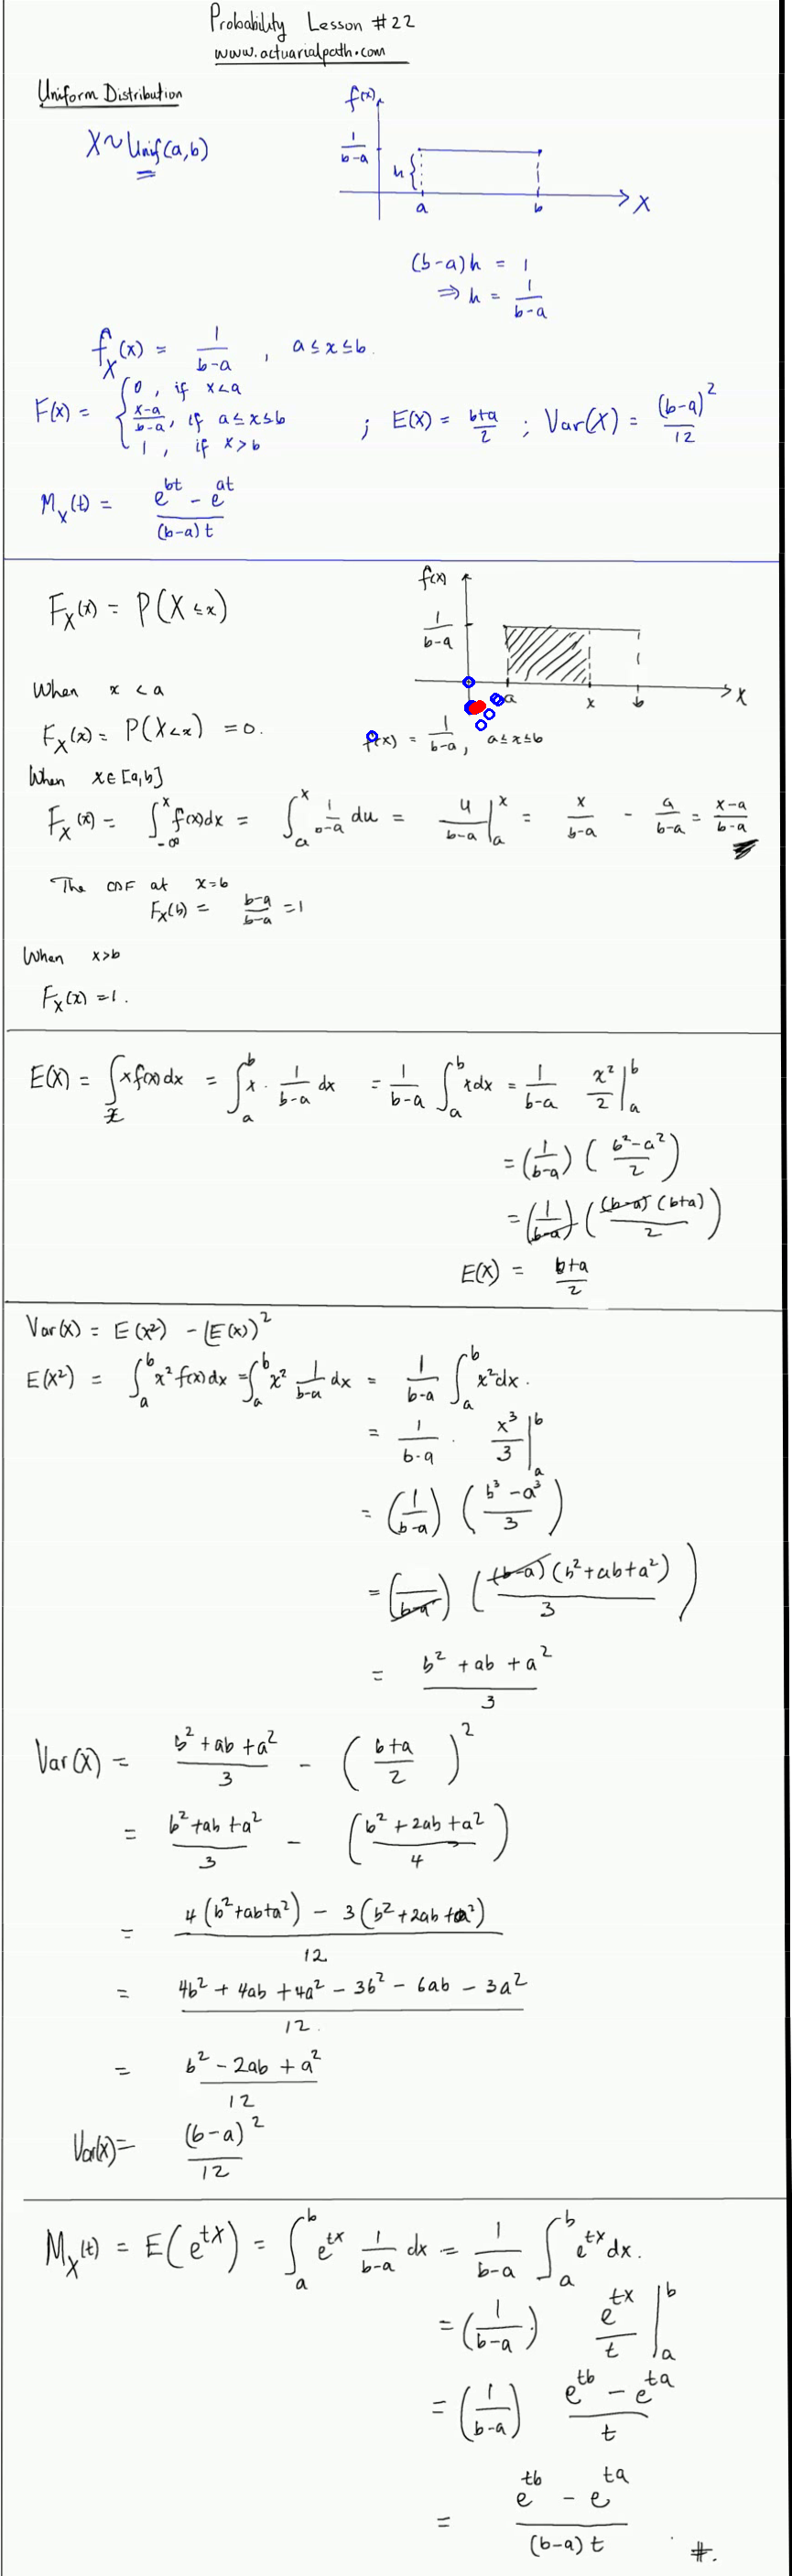 Probability Lesson #22
www.actuarialpath.com
Uniform Distribution
X ~ Unif(a,b)
f(x)
1/(b-a)
h{
a b X
(b-a)h = 1
⇒ h = 1/(b-a)
f_X(x) = 1/(b-a) , a ≤ x ≤ b.
F(x) = { 0, if x<a
(x-a)/(b-a), if a ≤ x ≤ b ; E(X) = (b+a)/2 ; Var(X) = (b-a)²/12
1, if x>b
M_X(t) = (e^bt - e^at)/((b-a)t)
F_X(x) = P(X ≤ x)
f(x)
1/(b-a)
a x b X
f(x) = 1/(b-a), a ≤ x ≤ b
When x < a
F_X(x) = P(X<x) = 0.
When x ∈ [a,b]
F_X(x) = ∫_-∞^x f(x)dx = ∫_a^x 1/(b-a) du = u/(b-a) |_a^x = x/(b-a) - a/(b-a) = (x-a)/(b-a)
The CDF at x=b
F_X(b) = (b-a)/(b-a) = 1
When x>b
F_X(x) = 1.
E(X) = ∫_x x f(x) dx = ∫_a^b x · 1/(b-a) dx = 1/(b-a) ∫_a^b x dx = 1/(b-a) x²/2 |_a^b
= (1/(b-a)) ((b²-a²)/2)
= (1/(b-a)) ((b-a)(b+a)/2)
E(X) = (b+a)/2
Var(X) = E(X²) - (E(X))²
E(X²) = ∫_a^b x² f(x) dx = ∫_a^b x² 1/(b-a) dx = 1/(b-a) ∫_a^b x² dx.
= 1/(b-a) · x³/3 |_a^b
= (1/(b-a)) ((b³-a³)/3)
= (1/(b-a)) ((b-a)(b²+ab+a²)/3)
= (b²+ab+a²)/3
Var(X) = (b²+ab+a²)/3 - ((b+a)/2)²
= (b²+ab+a²)/3 - ((b²+2ab+a²)/4)
= (4(b²+ab+a²) - 3(b²+2ab+a²))/12
= (4b²+4ab+4a²-3b²-6ab-3a²)/12.
= (b²-2ab+a²)/12
Var(X) = (b-a)²/12
M_X(t) = E(e^tX) = ∫_a^b e^tx 1/(b-a) dx = 1/(b-a) ∫_a^b e^tx dx.
= (1/(b-a)) e^tx/t |_a^b
= (1/(b-a)) (e^tb - e^ta)/t
= (e^tb - e^ta)/((b-a)t) #.